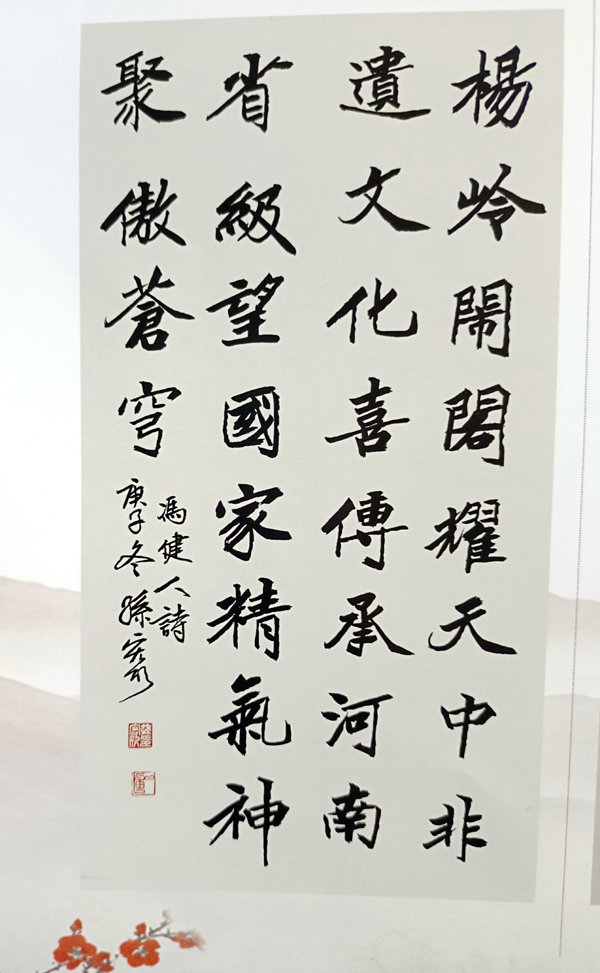 楊岭鬧閣耀天中非
遺文化喜傳承河南
省級望國家精氣神
聚傲蒼穹
馮健人詩
庚子冬孫